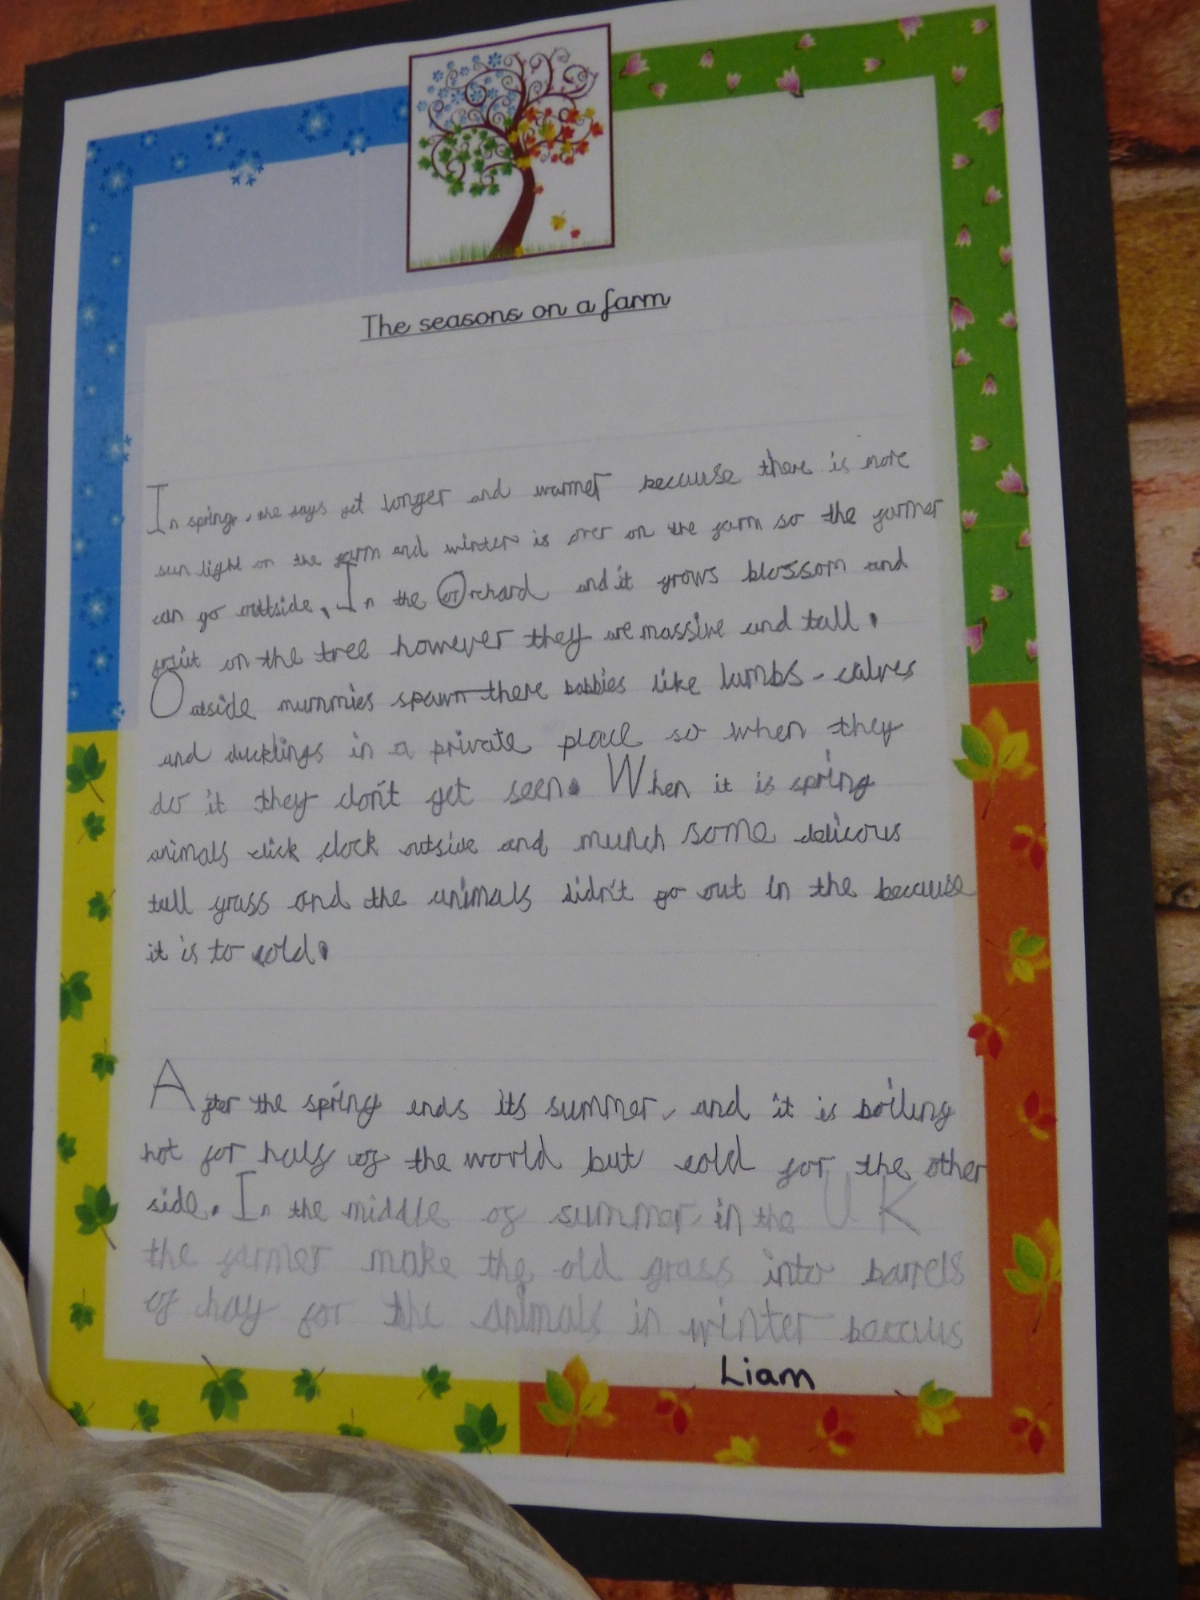 The seasons on a farm
In spring, the days get longer and warmer because there is more
sun light on the farm and winter is over on the farm so the farmer
can go outside. In the Orchard and it grows blossom and
fruit on the tree however they are massive and tall.
Outside mummies spawn there babbies like lambs calves
and ducklings in a private place so when they
do it they don't get seen. When it is spring
animals click clock outside and munch some delicous
tall grass and the animals didn't go out in the because
it is to cold.
After the spring ends its summer, and it is boiling
hot for half of the world but cold for the other
side. In the middle of summer in the UK
the farmer make the old grass into barrels
of hay for the animals in winter becaus
Liam